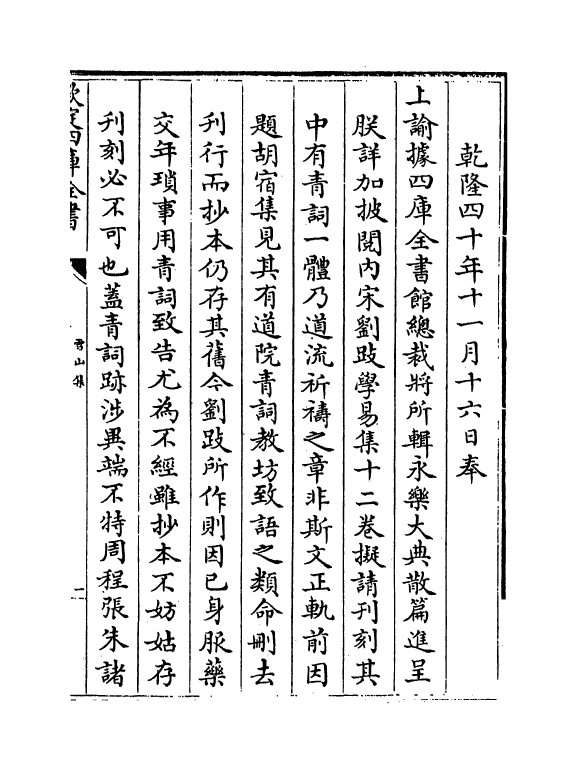 乾隆四十年十一月十六日奉
上諭據四庫全書館總裁將所輯永樂大典散篇進呈
朕詳加披閱內宋劉跂學易集十二卷擬請刊刻其
中有青詞一體乃道流祈禱之章非斯文正軌前因
題胡宿集見其有道院青詞教坊致語之類命刪去
刋行而抄本仍存其舊今劉跂所作則因已身服藥
交年瑣事用青詞致告尤為不經雖抄本不妨姑存
刋刻必不可也蓋青詞跡涉異端不特周程張朱諸
欽定四庫全書
雪山集
二